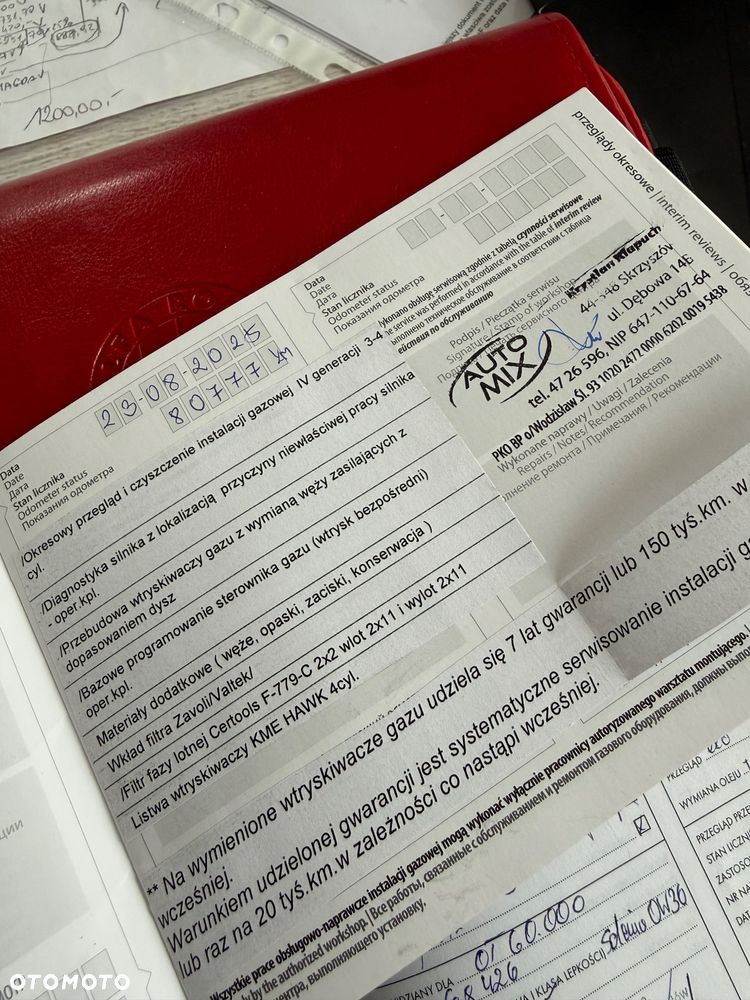 1200,00.-
przeglądy okresowe | interim reviews |
Data
Date
Дата
Stan licznika
Odometer status
Показания одометра
wykonano obsługę serwisową zgodnie z tabelą czynności serwisowe
service was performed in accordance with the table of interim review
выполнено техническое обслуживание в соответствии с таблица
действия по обслуживанию
Podpis / Pieczątka serwisu
Signature / Stamp of workshop
AUTO
MIX
Krystian Klapuch
44-348 Skrzyszów
ul. Dębowa 14E
tel. 47 26 596, NIP 647-110-67-64
PKO BP o/Wodzisław Śl. 93 1020 2472 0000 6202 0019 5438
Wykonane naprawy / Uwagi / Zalecenia
Repairs / Notes / Recommendation
ремонта / Примечания / Рекомендации
Data
Date
Дата
Stan licznika
Odometer status
Показания одометра
23-08-2025
80777 KM
/Okresowy przegląd i czyszczenie instalacji gazowej IV generacji 3-4
cyl.
/Diagnostyka silnika z lokalizacją przyczyny niewłaściwej pracy silnika
- oper.kpl.
/Przebudowa wtryskiwaczy gazu z wymianą węży zasilających z
dopasowaniem dysz
/Bazowe programowanie sterownika gazu (wtrysk bezpośredni)
oper.kpl.
Materiały dodatkowe ( węże, opaski, zaciski, konserwacja )
Wkład filtra Zavoli/Valtek/
/Filtr fazy lotnej Certools F-779-C 2x2 wlot 2x11 i wylot 2x11
Listwa wtryskiwaczy KME HAWK 4cyl.
** Na wymienione wtryskiwacze gazu udziela się 7 lat gwarancji lub 150 tyś.km. w
wcześniej.
Warunkiem udzielonej gwarancji jest systematyczne serwisowanie instalacji
lub raz na 20 tyś.km.w zależności co nastąpi wcześniej.
Wszystkie prace obsługowo-naprawcze instalacji gazowej mogą wykonać wyłącznie pracownicy autoryzowanego warsztatu montującego
by the authorized workshop | Все работы, связанные с обслуживанием и ремонтом газового оборудования, должны
центра, выполняющего установку.
PRZEGLĄD
WYMIANA OLEJU
PRZEGLĄD
STAN
60.000
I KLASA LEPKOŚCI
OTOMOTO